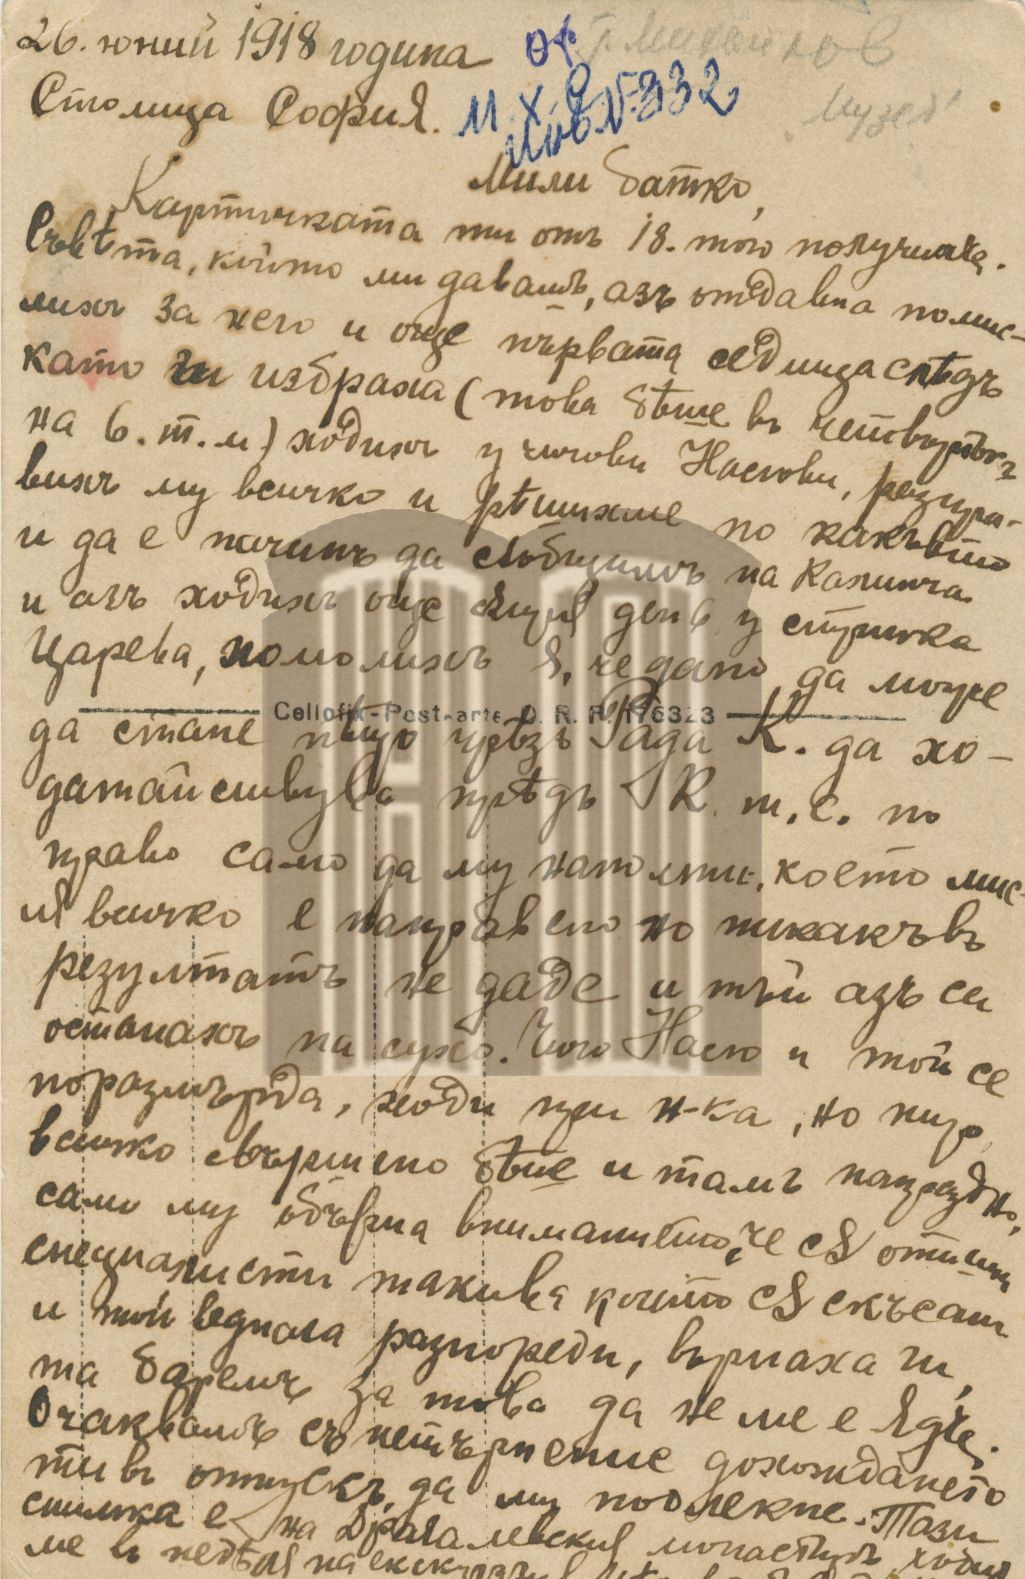 26. юний 1918 година
Столица София.
от М. Х. С
Инв № 332
Михайлов
"Музей"
Мили батко,
Картичката ти отъ 18. того получихъ.
Съвѣта, който ми давашъ, азъ отдавна помис-
лихъ за него и още първата седмица слѣдъ
като ги избраха (това бѣше въ четвъртъкъ
на 6. т. м) ходихъ у чичови Наскови,
вихъ му всичко и рѣшихме по какъвто
и да е начинъ да съобщимъ на Калинча
и азъ ходихъ още същия день у стринка
Царева, помолихъ я, че дано да може
да стане нѣщо чрѣзъ Рада К. да хо-
датайствува прѣдъ К. т. с. по
право само да му напомни, което мис-
ля всичко е направено но никакъвъ
резултатъ не даде и тъй азъ си
останахъ на сухо. Чичо Наско и той се
поразмърда, ходи при н-ка, но
всичко свършено бѣше и тамъ напраздно,
само му обърна вниманието, че сѫ отишли
специалисти такива които сѫ скъсани
и той веднага разпореди, върнаха ги,
та баремъ за това да не ме е ядъ.
Очаквамъ съ нетърпение дохождането
ти въ отпускъ, да ми поолекне. Тази
снимка е на Драгалевския монастиръ ходих
ме въ недѣля на екскурзия
Cellofix-Postkarte D. R. P. 176323